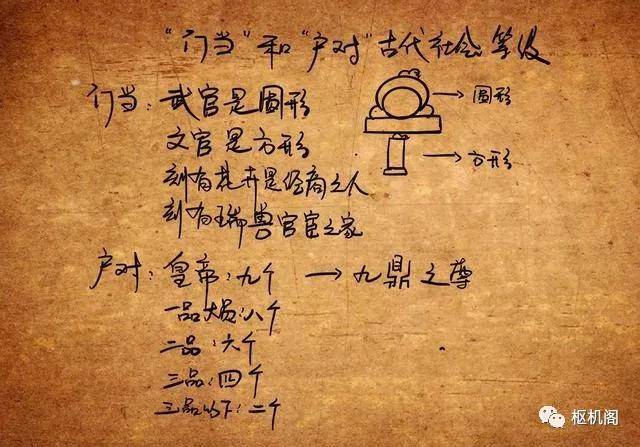 "门当"和"户对"古代社会等级
门当：武官是圆形
文官是方形
刻有花卉是经商之人
刻有瑞兽官宦之家
圆形
方形
户对：皇帝：九个 → 九鼎之尊
一品大员：八个
二品：六个
三品：四个
三品以下：二个
枢机阁